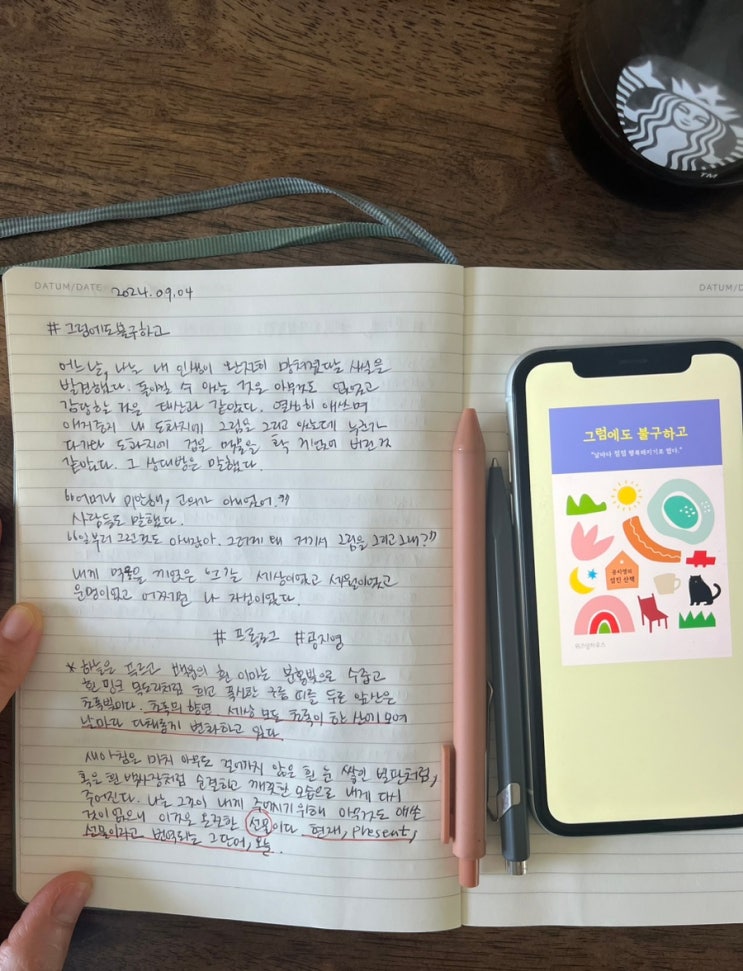 DATUM/DATE 2024.09.04
DATUM/D
# 그럼에도불구하고
어느날, 나는 내 인생이 완전히 망쳐졌다는 사실을
발견했다. 돌이킬 수 있는 것은 아무것도 없었고
감당할 것은 태산과 같았다. 열심히 애쓰며
이제껏 내 도화지에 그림을 그리고 있는데 누군가
다가와 도화지에 검은 먹물을 확 끼얹어 버린 것
같았다. 그 상대방은 말했다.
"어머나 미안해, 고의가 아니었어."
사람들도 말했다.
"일부러 그런것도 아니잖아. 그러게 왜 거기서 그림을 그리고 그래?"
내게 먹물을 끼얹은 '그'는 세상이었고 세월이었고
운명이었고 어쩌면 나 자신이었다.
# 프롤로그 #공지영
* 하늘은 푸르고 백운의 흰 이마는 분홍빛으로 수줍고
흰 밍크 목도리처럼 희고 폭신한 구름 띠를 두른 앞산은
초록빛이다. 초록의 향연. 세상 모든 초록이 하 산에 모여
날마다 다채롭게 변화하고 있다.
새아침은 마치 아무도 걸어가지 않은 흰 눈 쌓인 벌판처럼,
혹은 흰 백사장처럼 순결하고 깨끗한 모습으로 내게 다시
주어진다. 나는 그것이 내게 주어지기 위해 아무것도 애쓴
것이 없으니 이것은 온전한 선물이다. 현재, present,
선물이라고 번역되는 그 단어, 오늘.
그럼에도 불구하고
"날마다 점점 행복해지기로 했다."
공지영의
섬진 산책
위즈덤하우스
TM